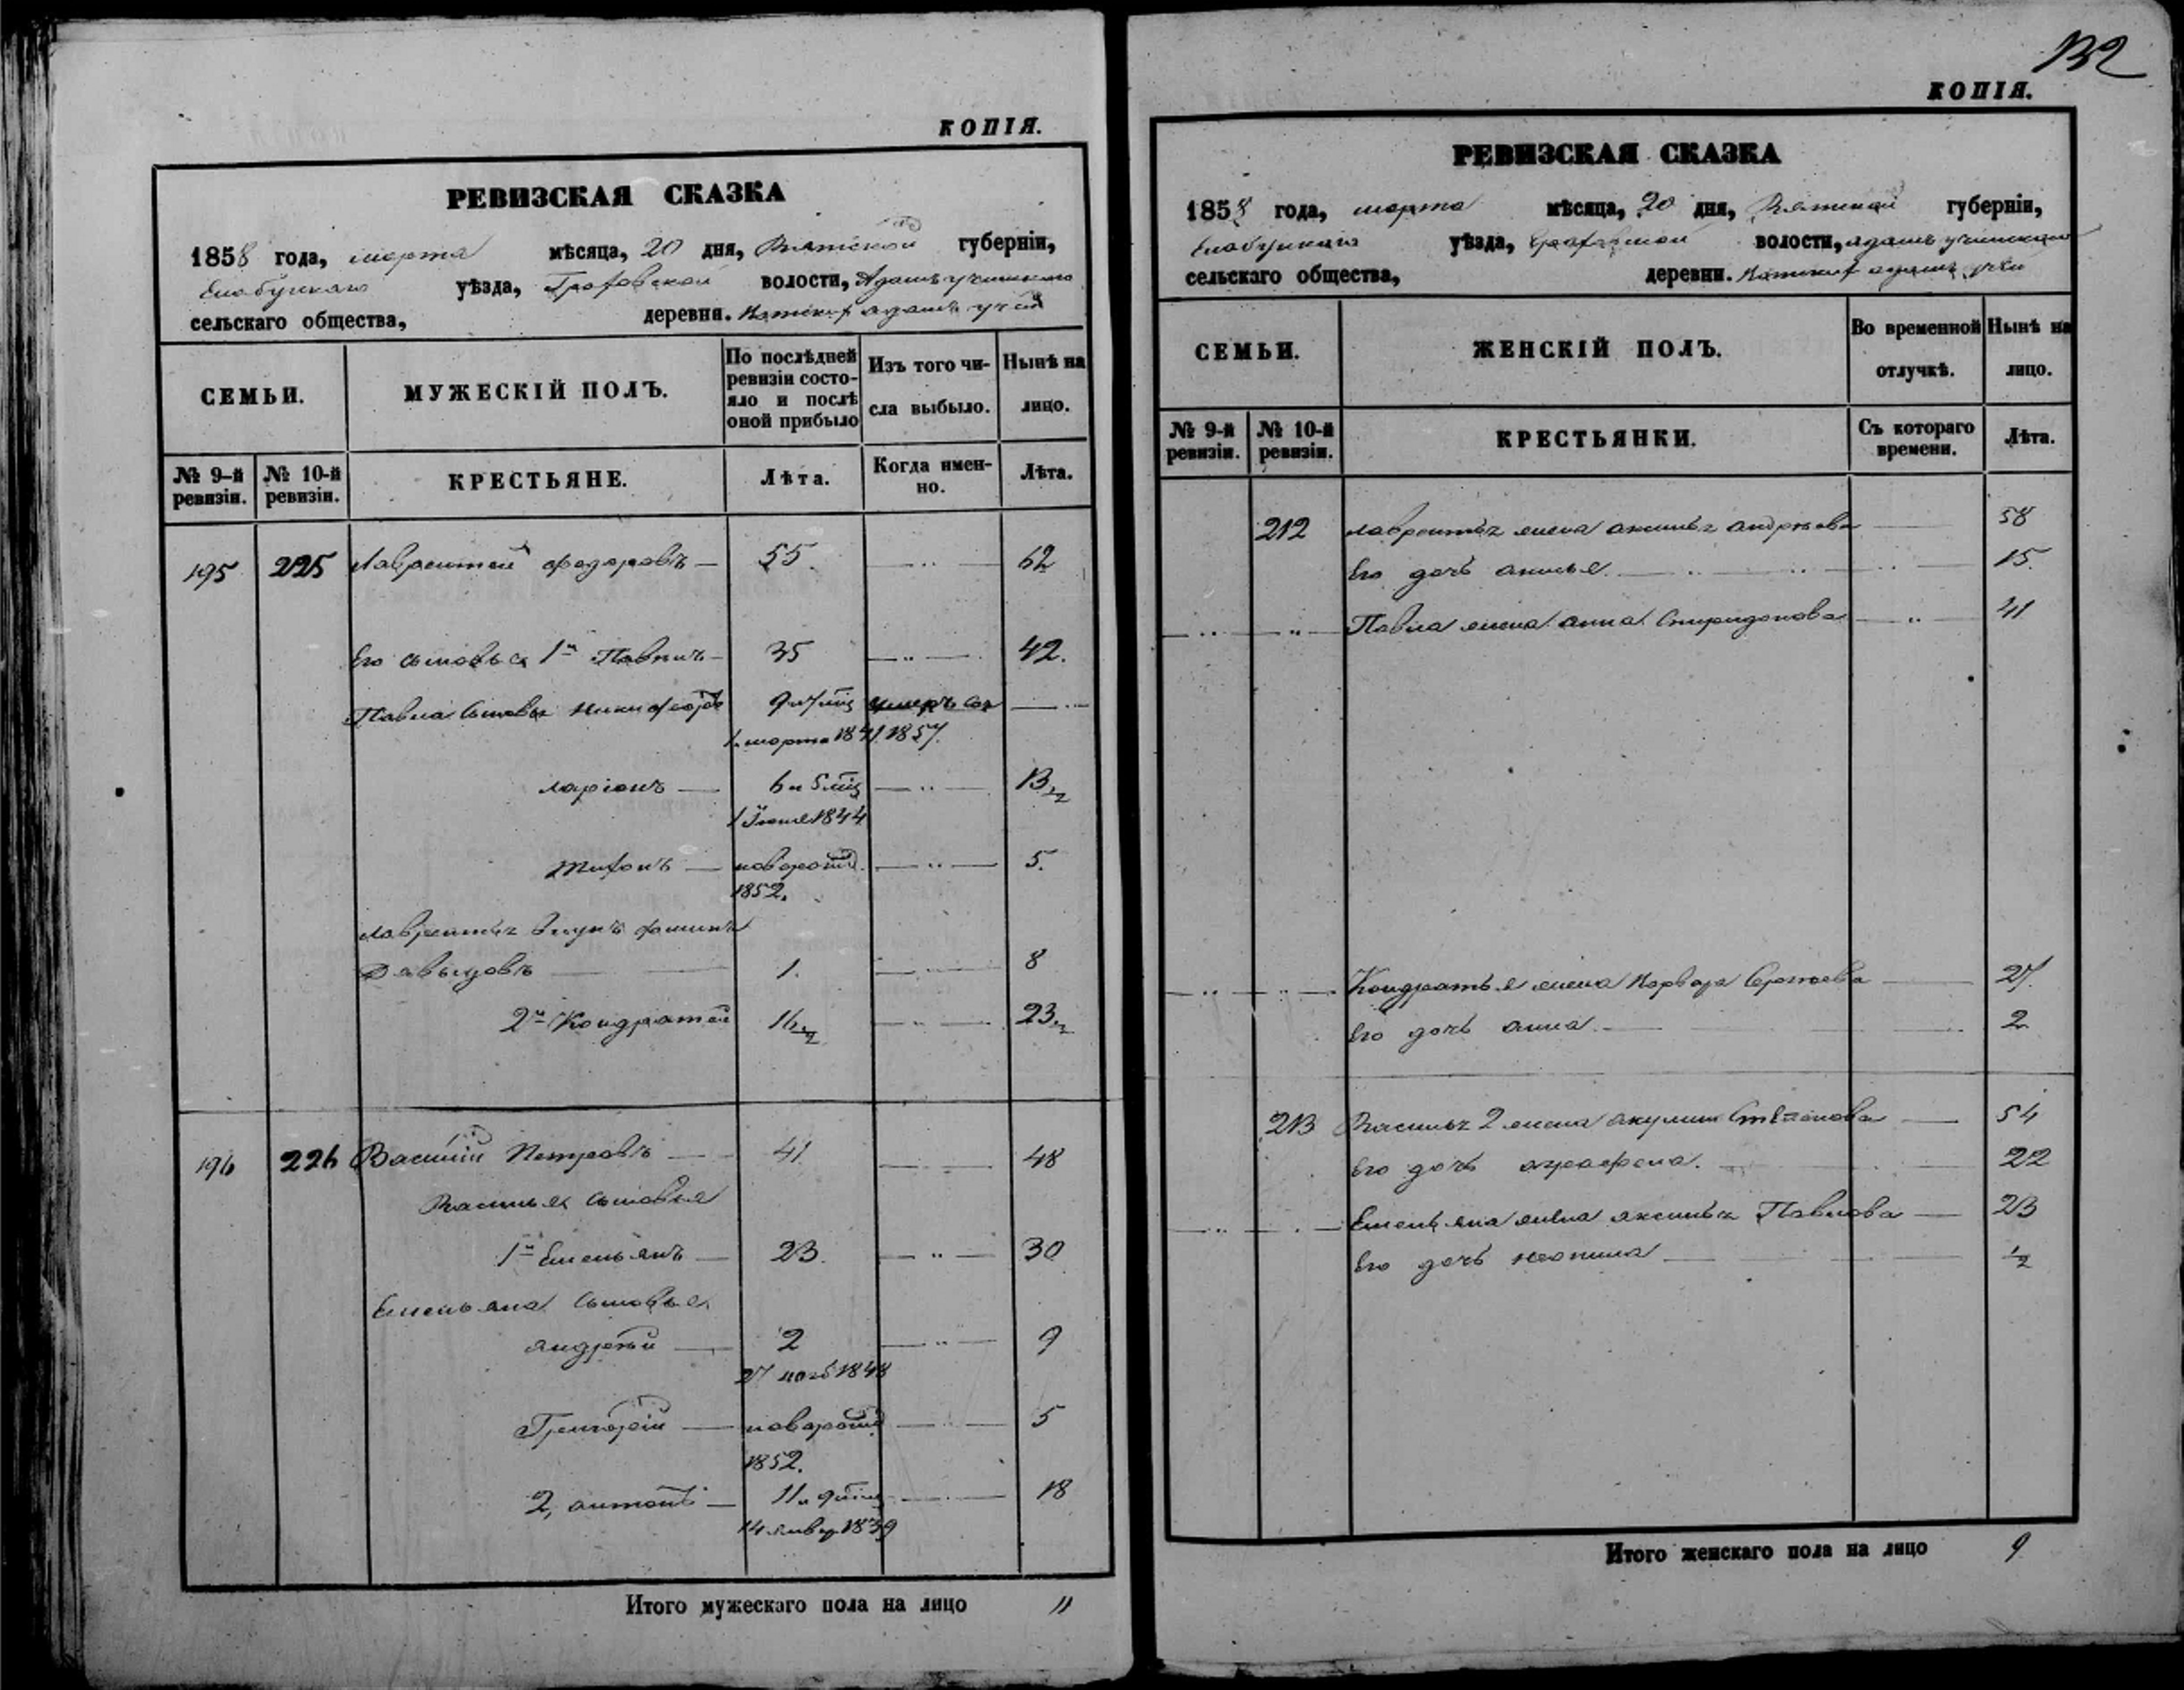 КОПІЯ.
РЕВИЗСКАЯ СКАЗКА
1858 года, марта мѣсяца, 20 дня, Вятской губерніи,
Елабужскаго уѣзда, Граховской волости, Адамъ учинскаго
сельскаго общества, деревни. адамъ учи
СЕМЬИ.
МУЖЕСКІЙ ПОЛЪ.
По послѣдней ревизіи состояло и послѣ оной прибыло
Изъ того числа выбыло.
Нынѣ на лицо.
№ 9-й ревизіи.
№ 10-й ревизіи.
КРЕСТЬЯНЕ.
Лѣта.
Когда именно.
Лѣта.
195 225 Лаврентей федоровъ — 55 — " — 62
Его сыновья 1й Павелъ — 35 — " — 42.
Павла сыновья Никифоръ 9 и 7 мѣц умеръ — " —
1 марта 1841 1857.
ларіонъ — 6 и 5 мѣц — " — 13 1/2
1 Іюня 1844
тихонъ — новорожд. — " — 5.
1852.
лаврентья внукъ фаминъ
Давыдовъ — 1. — " — 8
2й Кондратей 16 1/2 — " — 23 1/2
196 226 Василій Петровъ — 41 — " — 48
Василья сыновья
1й Емельянъ — 23. — " — 30
Емельяна сыновья
андрей — 2 — " — 9
27 нояб 1848
Григорій — новорожд — " — 5
1852.
2, антонъ — 11 и 9 мѣц — " — 18
14 январ 1839
Итого мужескаго пола на лицо 11
132
КОПІЯ.
РЕВИЗСКАЯ СКАЗКА
1858 года, марта мѣсяца, 20 дня, Вятской губерніи,
Елабужскаго уѣзда, Граховской волости, адамъ учинскаго
сельскаго общества, деревни. адамъ учи
СЕМЬИ.
ЖЕНСКІЙ ПОЛЪ.
Во временной отлучкѣ.
Нынѣ на лицо.
№ 9-й ревизіи.
№ 10-й ревизіи.
КРЕСТЬЯНКИ.
Съ котораго времени.
Лѣта.
212 лаврентья жена аксинья андреева — 58
Его дочь анисья — " — 15.
— " — " — Павла жена анна Спиридонова — " — 41
— " — " — Кондратья жена Варвара Сергеева — 27
Его дочь анна — 2
213 Василья 2 жена акулина Степанова — 54
Его дочь аграфена. — 22
— " — " — Емельяна жена аксинья Павлова — 23
Его дочь — 1/2
Итого женскаго пола на лицо 9